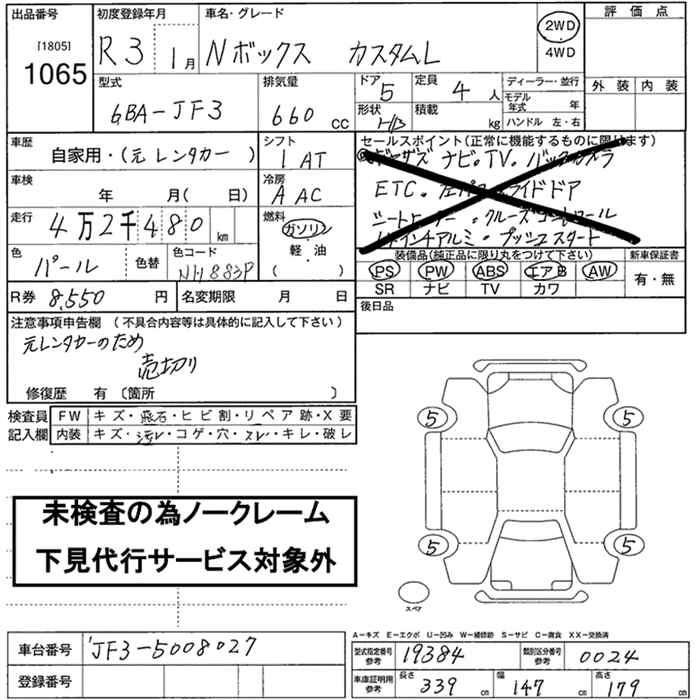 出品番号 初度登録年月 車名・グレード 2WD 4WD 評価点
[1805]
1065 R3 1月 Nボックス カスタムL
型式 排気量 ドア 5 定員 4人 ディーラー・並行 外装 内装
6BA-JF3 660cc 形状 H/B 積載 kg モデル年式 年
ハンドル 左・右
車歴 シフト セールスポイント(正常に機能するものに限ります)
自家用・(元レンタカー) IAT ナビ。TV。バックカメラ
車検 冷房 ETC。左パワースライドドア
年 月( 日) AAC シートヒーター。クルーズコントロール
走行 燃料 14インチアルミ。プッシュスタート
4万2千480km ガソリン 軽・油
色 色替 色コード 装備品(純正品に限り丸をつけて下さい) 新車保証書
パール NH883P PS PW ABS エアB AW 有・無
SR ナビ TV カワ
R券 8,550円 名変期限 月 日 後日品
注意事項申告欄 (不具合内容等は具体的に記入して下さい)
元レンタカーのため
売切り
修復歴 有 〔箇所 〕
検査員記入欄 FW キズ・飛石・ヒビ割・リペア跡・X要
内装 キズ・汚レ・コゲ・穴・スレ・キレ・破レ
5 5
未検査の為ノークレーム
下見代行サービス対象外
5 5
スペア
A-キズ E-エクボ U-凹み W-補修跡 S-サビ C-腐食 XX-交換済
車台番号 JF3-5008027 型式指定番号参考 19384 類別区分番号参考 0024
登録番号 車庫証明用参考 長さ 339cm 幅 147cm 高さ 179cm